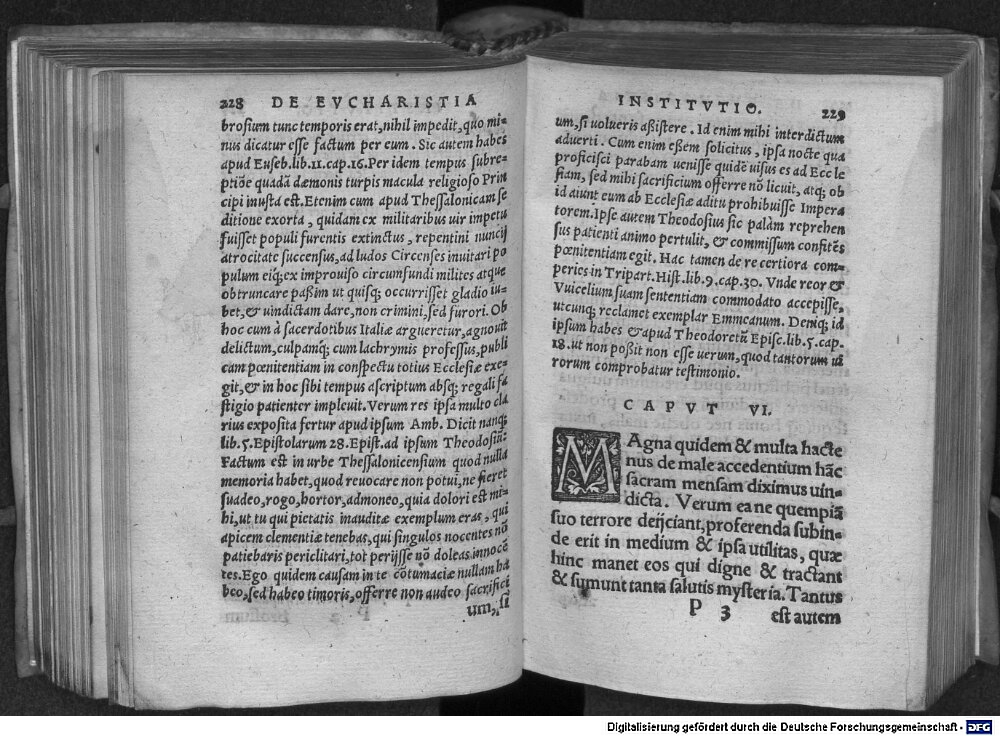 228 DE EVCHARISTIA
brosium tunc temporis erat, nihil impedit, quo mi-
nus dicatur esse factum per eum. Sic autem habes
apud Euseb.lib.11.cap.16.Per idem tempus subre-
ptiõe quadã dæmonis turpis macula religioso Prin
cipi inusta est.Etenim cum apud Thessalonicam se
ditione exorta, quidam ex militaribus uir impetu
fuisset populi furentis extinctus, repentini nuncij
atrocitate succensus, ad ludos Circenses inuitari po
pulum eiq́;ex improuiso circumfundi milites atque
obtruncare paßim ut quisq; occurrisset gladio iu-
bet,& uindictam dare, non crimini, sed furori. Ob
hoc cum à sacerdotibus Italiæ argueretur, agnouit
delictum, culpamq́; cum lachrymis professus, publi
cam pœnitentiam in conspectu totius Ecclesiæ exe-
git,& in hoc sibi tempus ascriptum absq; regali fa
stigio patienter impleuit.Verum res ipsa multo cla
rius exposita fertur apud ipsum Amb. Dicit nanq;
lib.5.Epistolarum 28.Epist.ad ipsum Theodosiũ:
Factum est in urbe Thessalonicensium quod nulla
memoria habet, quod reuocare non potui, ne fieret
suadeo, rogo, hortor, admoneo, quia dolori est mi-
hi, ut tu qui pietatis inauditæ exemplum eras, qui
apicem clementiæ tenebas, qui singulos nocentes nõ
patiebaris periclitari, tot perijsse nõ doleas innocẽ
tes.Ego quidem causam in te cõtumaciæ nullam ha
beo, sed habeo timoris, offerre non audeo sacrifici
um, si
INSTITVTIO. 229
um, si uolueris aßistere. Id enim mihi interdictum
aduerti. Cum enim eßem solicitus, ipsa nocte qua
proficisci parabam uenisse quidẽ uisus es ad Eccle
siam, sed mihi sacrificium offerre nõ licuit, atq; ob
id aiunt eum ab Ecclesiæ aditu prohibuisse Impera
torem.Ipse autem Theodosius sic palàm reprehen
sus patienti animo pertulit, & commissum confitẽs
pœnitentiam egit. Hac tamen de re certiora com-
peries in Tripart.Hist.lib.9.cap.30. Vnde reor &
Vuicelium suam sententiam commodato accepisse,
utcunq; reclamet exemplar Emmeanum. Deniq; id
ipsum habes & apud Theodoretũ Episc.lib.5.cap.
18.ut non poßit non esse uerum, quod tantorum ui
rorum comprobatur testimonio.
CAPVT VI.
MAgna quidem & multa hacte
nus de male accedentium hãc
sacram mensam diximus uin-
dicta. Verum ea ne quempiã
suo terrore deijciant, proferenda subin-
de erit in medium & ipsa utilitas, quæ
hinc manet eos qui digne & tractant
& sumunt tanta salutis mysteria. Tantus
P 3 est autem
Digitalisierung gefördert durch die Deutsche Forschungsgemeinschaft - DFG